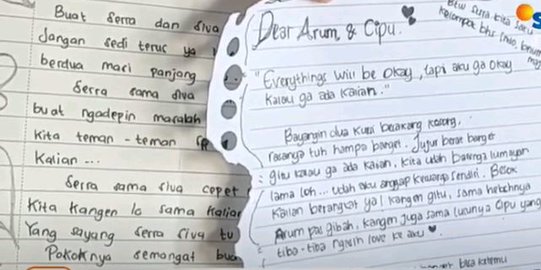 Buat Serra dan Siva
Jangan sedi terus ya
berdua maci panjang
Serra sama Siva
buat ngadepin masalah
Kita teman - teman
Kalian ...
Serra sama Siva cepet
Kita kangen lo sama Kalian
Yang sayang Serra Siva tu
Pokoknya semangat bua
Dear Arum & Cipu.
Btw Surra kita satu
kelompok bhs Indo,
"Everythings will be okay, tapi aku ga okay
kalau ga ada kalian."
Bayangin dua kursi belakang kosong,
rasanya tuh hampa banget. Jujur berat banget
gitu kalau ga ada kalian, kita udah bareng lumayan
lama loh... udah aku anggap keluarga sendiri. Besok
kalian berangkat ya! kangen gitu, sama hebohnya
Arum pas gibah, kangen juga sama lucunya Cipu yang
tiba-tiba ngasih love ke aku
bisa ketemu
S